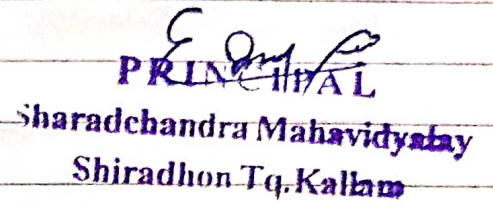 PRINCIPAL
Sharadchandra Mahavidyalay
Shiradhon Tq. Kallam